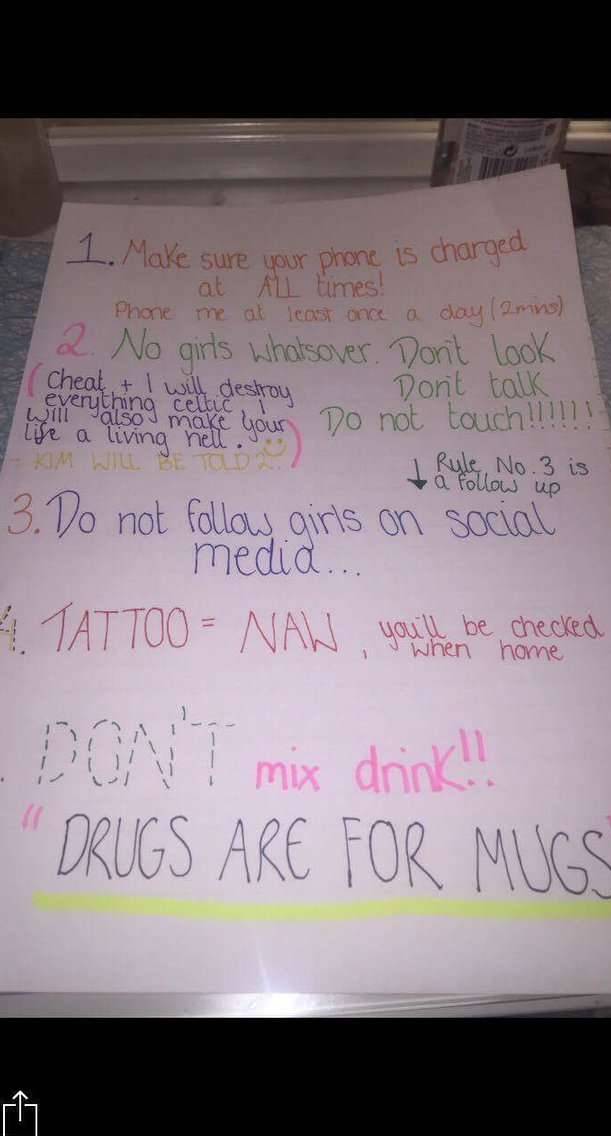 1. Make sure your phone is charged
at ALL times!
Phone me at least once a day (2mins)
2. No girls whatsover. Don't look
Don't talk
Do not touch!!!!!!
(Cheat + I will destroy
everything celtic. I
will also make your
life a living hell.)
= KIM WILL BE TOLD 2!!
↓ Rule No. 3 is
a follow up
3. Do not follow girls on social
media...
4. TATTOO = NAW, you'll be checked
when home
. DON'T mix drink!!
"DRUGS ARE FOR MUGS"